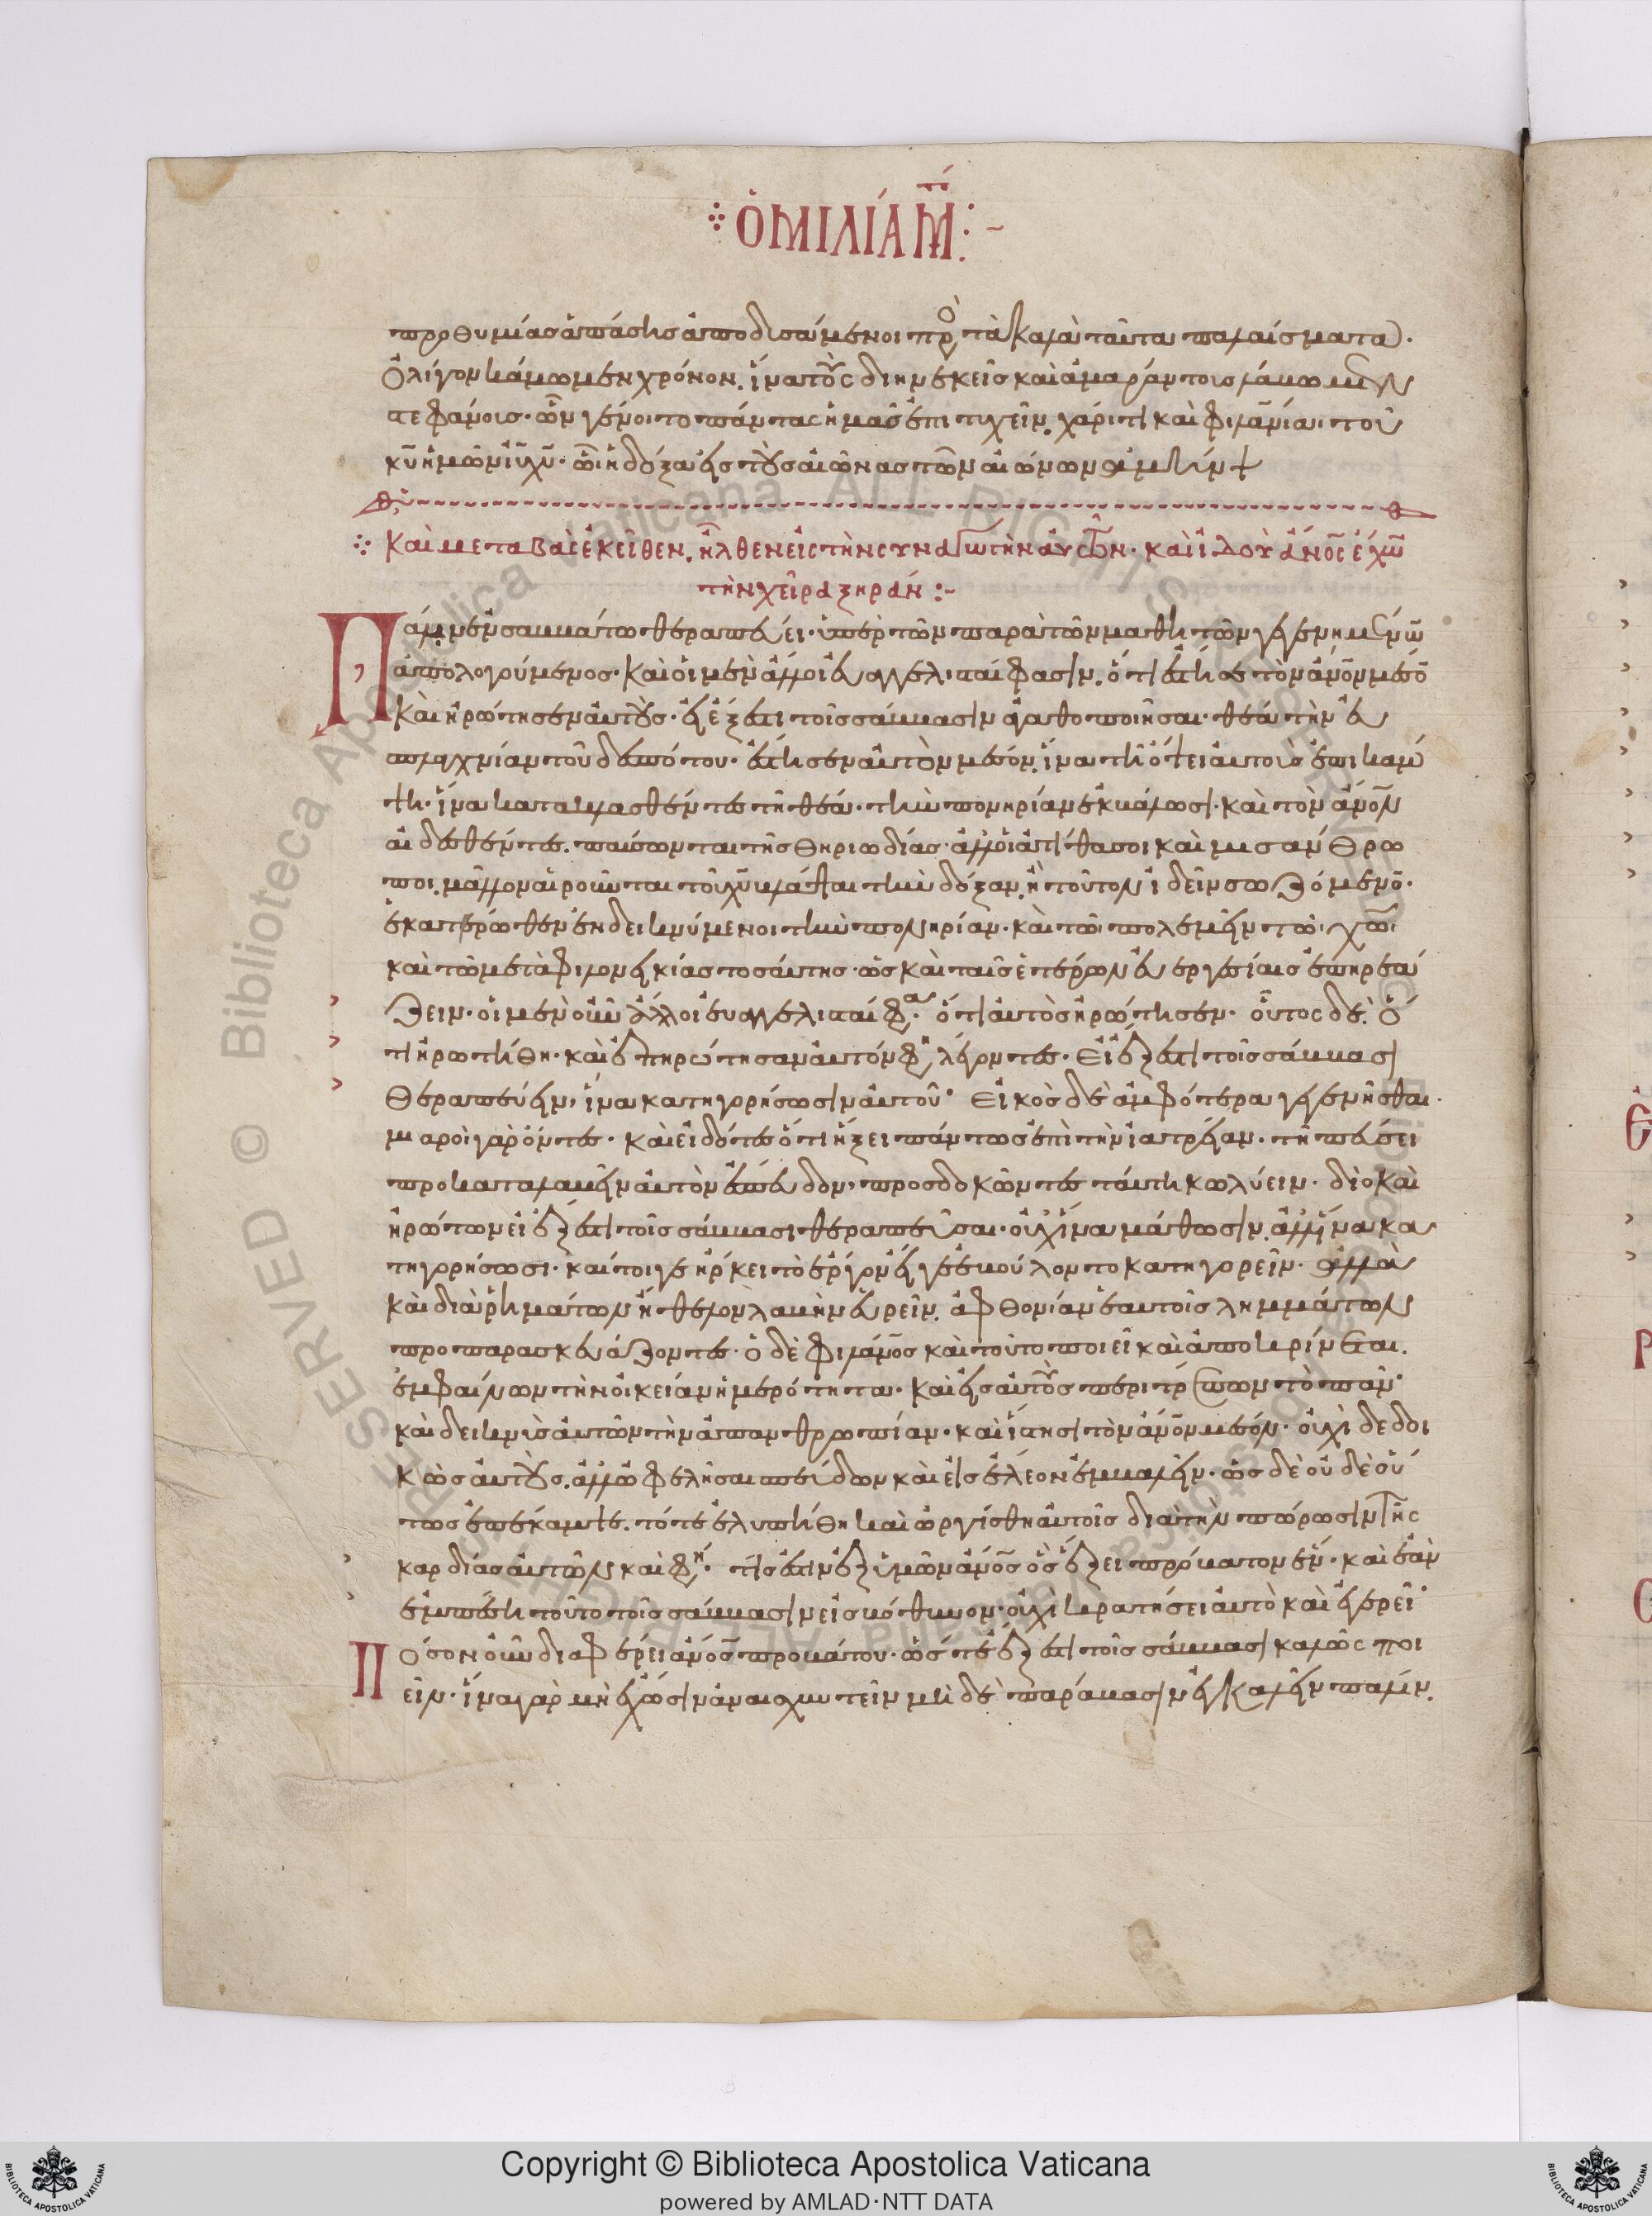 ὁμιλία μ̅:-
προθυμίας ἁπάσης ἀποδυσάμενοι πρὸς τὰ καλὰ ταῦτα παλαίσματα.
ὀλίγον κάμωμεν χρόνον. ἵνα τοὺς διηνεκεῖς καὶ ἀμαράντους λάβωμεν σ
τεφάνους. ὧν γένοιτο πάντας ἡμᾶς ἐπιτυχεῖν. χάριτι καὶ φιλανίαι τοῦ
κυ ἡμῶν ιυ χυ. ὧι ἡ δόξα εἰς τοὺς αἰῶνας τῶν αἰώνων ἀμήν +
καὶ μεταβὰς ἐκεῖθεν. ἦλθεν εἰς τὴν συναγωγὴν αὐτῶν. καὶ ἰδοὺ ἀνος ἔχων
τὴν χεῖρα ξηράν :-
Πάλιν ἐν σαββάτω θεραπεύει. ὑπὲρ τῶν παρὰ τῶν μαθητῶν γεγενημένων
ἀπολογούμενος. καὶ οἱ μὲν ἄλλοι εὐαγγελισταί φασιν. ὅτι ἔστησε τὸν ἄνον μέσον
καὶ ἠρώτησεν αὐτοὺς. εἰ ἔξεστι τοῖς σάββασιν ἀγαθοποιῆσαι. θέα τὴν εὐ
σπλαγχνίαν τοῦ δεσπότου. ἔστησεν αὐτὸν μέσον. ἵνα τῆ ὄψει αὐτοὺς ἐπικάμ
ψη. ἵνα κατακλασθέντες τῆ θέα. τὴν πονηρίαν ἐκβάλωσι. καὶ τὸν ἄνον
αἰδεσθέντες. παύσωνται τῆς θηριωδίας. ἀλλ' οἱ ἀτιθασοι καὶ μισάνθρω
ποι. μᾶλλον αἱροῦνται τοῦ χυ βλάψαι τὴν δόξαν. ἢ τοῦτον ἰδεῖν σωζόμενον.
ἑκατέρωθεν ἐνδεικνύμενοι τὴν πονηρίαν. καὶ τῶ πολεμεῖν τῶ χω
καὶ τῶ μετὰ φιλονεικίας τοσαύτης. ὡς καὶ ταῖς ἑτέρων εὐεργεσίαις ἐπηρεά
ζειν. οἱ μὲν οὖν ἄλλοι εὐαγγελισταί φα. ὅτι αὐτὸς ἠρώτησεν. οὗτος δέ. ὅ
τι ἠρωτήθη. καὶ ἐπηρώτησαν αὐτόν φη λέγοντες. εἰ ἔξεστι τοῖς σάββασι
θεραπεύειν, ἵνα κατηγορήσωσιν αὐτοῦ. εἰκὸς δὲ ἀμφότερα γεγενῆσθαι.
μιαροὶ γὰρ ὄντες. καὶ εἰδότες ὅτι ἥξει πάντως ἐπὶ τὴν ἰατρείαν. τῆ πεύσει
προκαταλαβεῖν αὐτὸν ἔσπευδον, προσδοκῶντες ταύτη κωλύειν. διὸ καὶ
ἠρώτων εἰ ἔξεστι τοῖς σάββασι θεραπεῦσαι. οὐχ ἵνα μάθωσιν. ἀλλ' ἵνα κα
τηγορήσωσι. καίτοι γε ἤρκει τὸ ἔργον εἴ γε ἐβούλοντο κατηγορεῖν. ἀλλὰ
καὶ διὰ ῥημάτων ἤθελον λαβὴν εὑρεῖν. ἀφθονίαν ἑαυτοῖς λημμάτων
προπαρασκευάζοντες. ὁ δὲ φιλανος καὶ τοῦτο ποιεῖ καὶ ἀποκρίνεται.
ἐμφαίνων τὴν οἰκείαν ἡμερότητα. καὶ εἰς αὐτοὺς περιτρέπων τὸ πᾶν.
καὶ δεικνὺς αὐτῶν τὴν ἀπανθρωπίαν. καὶ ἵστησι τὸν ἄνον μέσον. οὐχὶ δεδοι
κὼς αὐτοὺς. ἀλλ' ὠφελῆσαι σπεύδων καὶ εἰς ἔλεον ἐμβαλεῖν. ὡς δὲ οὐδὲ οὕ
τως ἐπέκαμψε. τότε ἐλυπήθη καὶ ὠργίσθη αὐτοῖς διὰ τὴν πώρωσιν τῆς
καρδίας αὐτῶν καὶ φη. τίς ἐστιν ἐξ ὑμῶν ἄνος ὃς ἕξει πρόβατον ἕν. καὶ ἐὰν
ἐμπέση τοῦτο τοῖς σάββασιν εἰς βόθυνον. οὐχὶ κρατήσει αὐτὸ καὶ ἐγερεῖ.
Πόσον οὖν διαφέρει ἄνος προβάτου. ὥστε ἔξεστι τοῖς σάββασι καλῶς ποι
εῖν. ἵνα γὰρ μὴ ἔχωσιν ἀναισχυντεῖν μὴ δὲ παράβασιν ἐγκαλεῖν πάλιν.